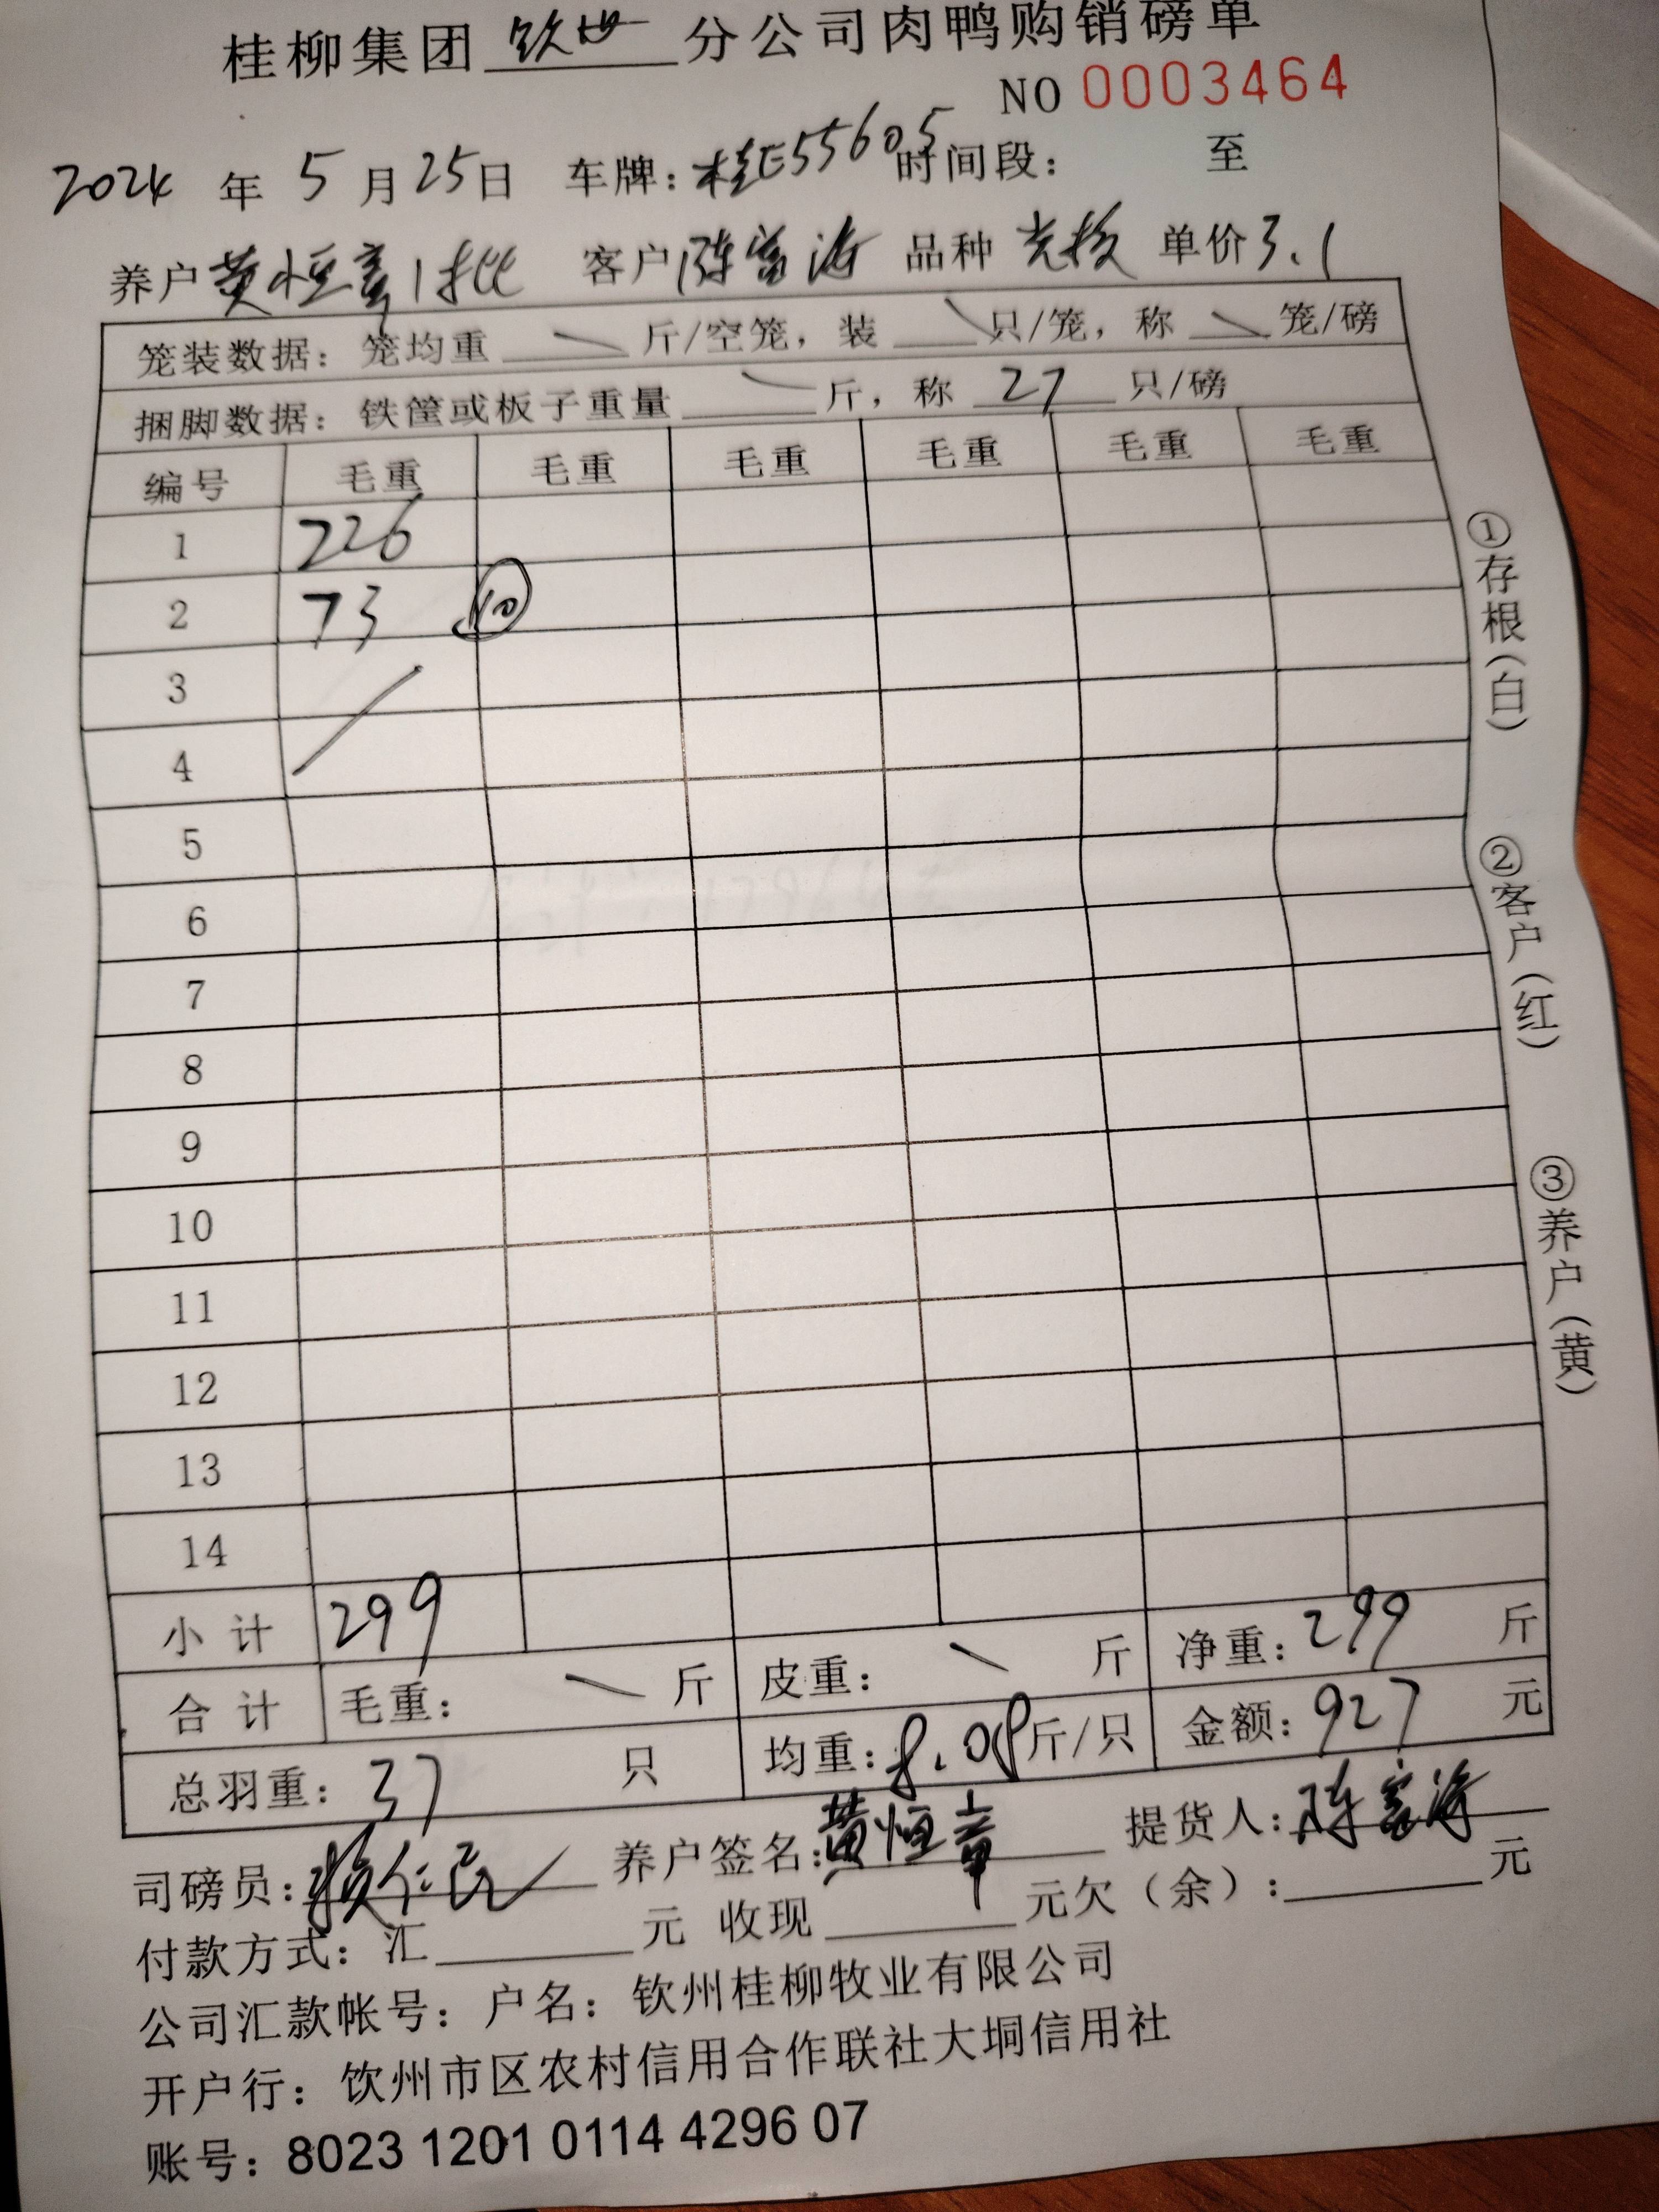 桂柳集团 钦州 分公司肉鸭购销磅单
NO 0003464
2024 年 5 月 25 日 车牌：桂E55605 时间段： 至
养户 黄恒章1批 客户 陈富海 品种 单价 3.1
笼装数据：笼均重 斤/空笼，装 只/笼，称 笼/磅
捆脚数据：铁筐或板子重量 斤，称 27 只/磅
编号 毛重 毛重 毛重 毛重 毛重 毛重
1 226
2 73 10
3
4
5
6
7
8
9
10
11
12
13
14
小计 299
合计 毛重： 斤 皮重： 斤 净重：299 斤
总羽重：37 只 均重：8.08 斤/只 金额：927 元
司磅员：赖仁民 养户签名：黄恒章 提货人：陈富海
付款方式：汇 元 收现 元欠（余）： 元
公司汇款帐号：户名：钦州桂柳牧业有限公司
开户行：钦州市区农村信用合作联社大垌信用社
账号：8023 1201 0114 4296 07
①存根（白）
②客户（红）
③养户（黄）